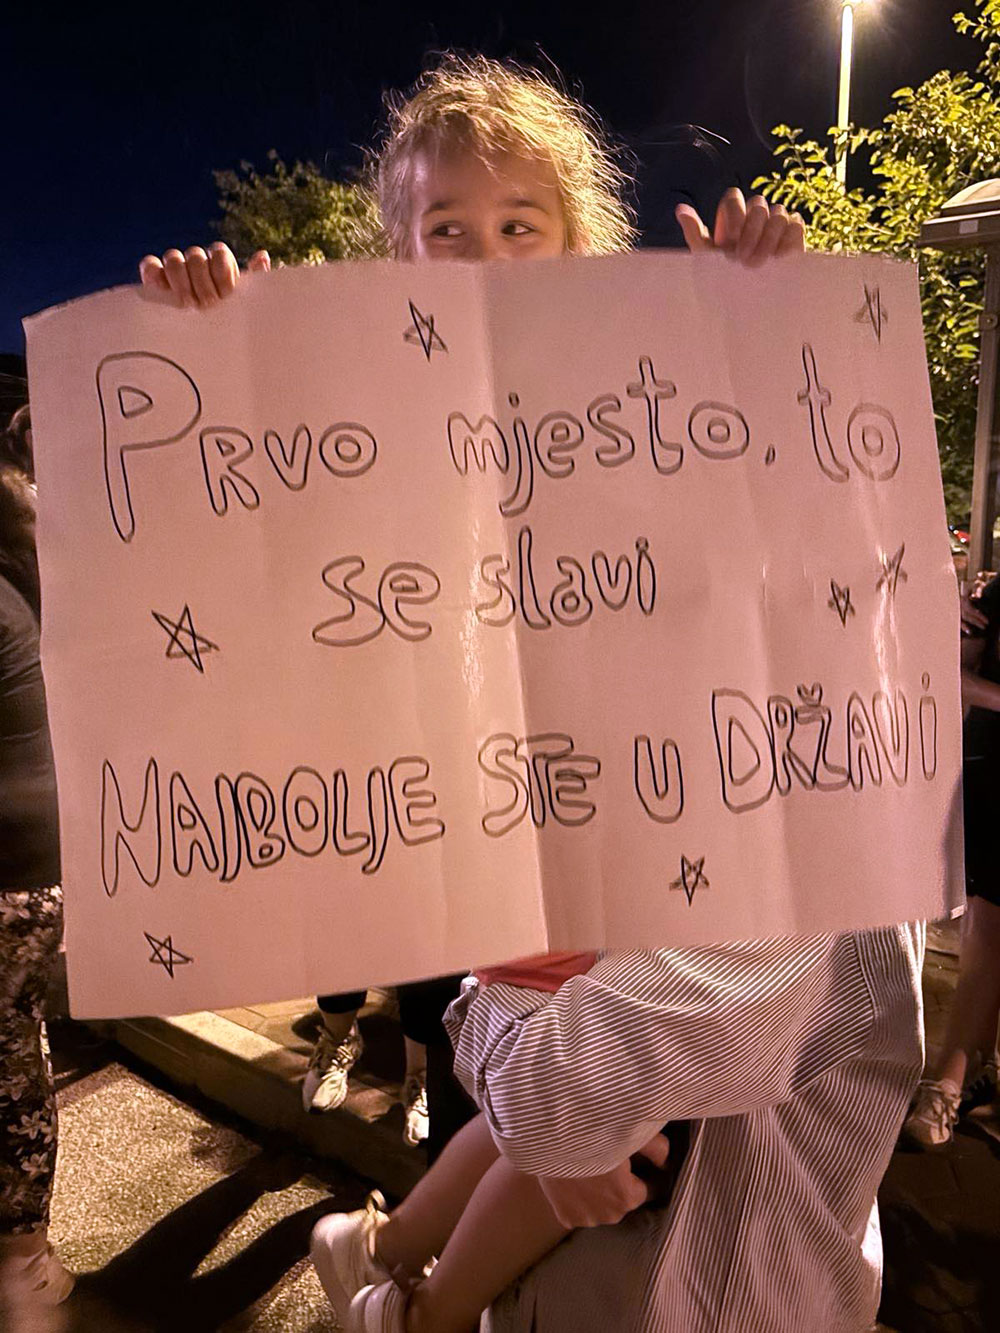 PRVO mjesto, to
se slavi
NAJBOLJE STE U DRŽAVI